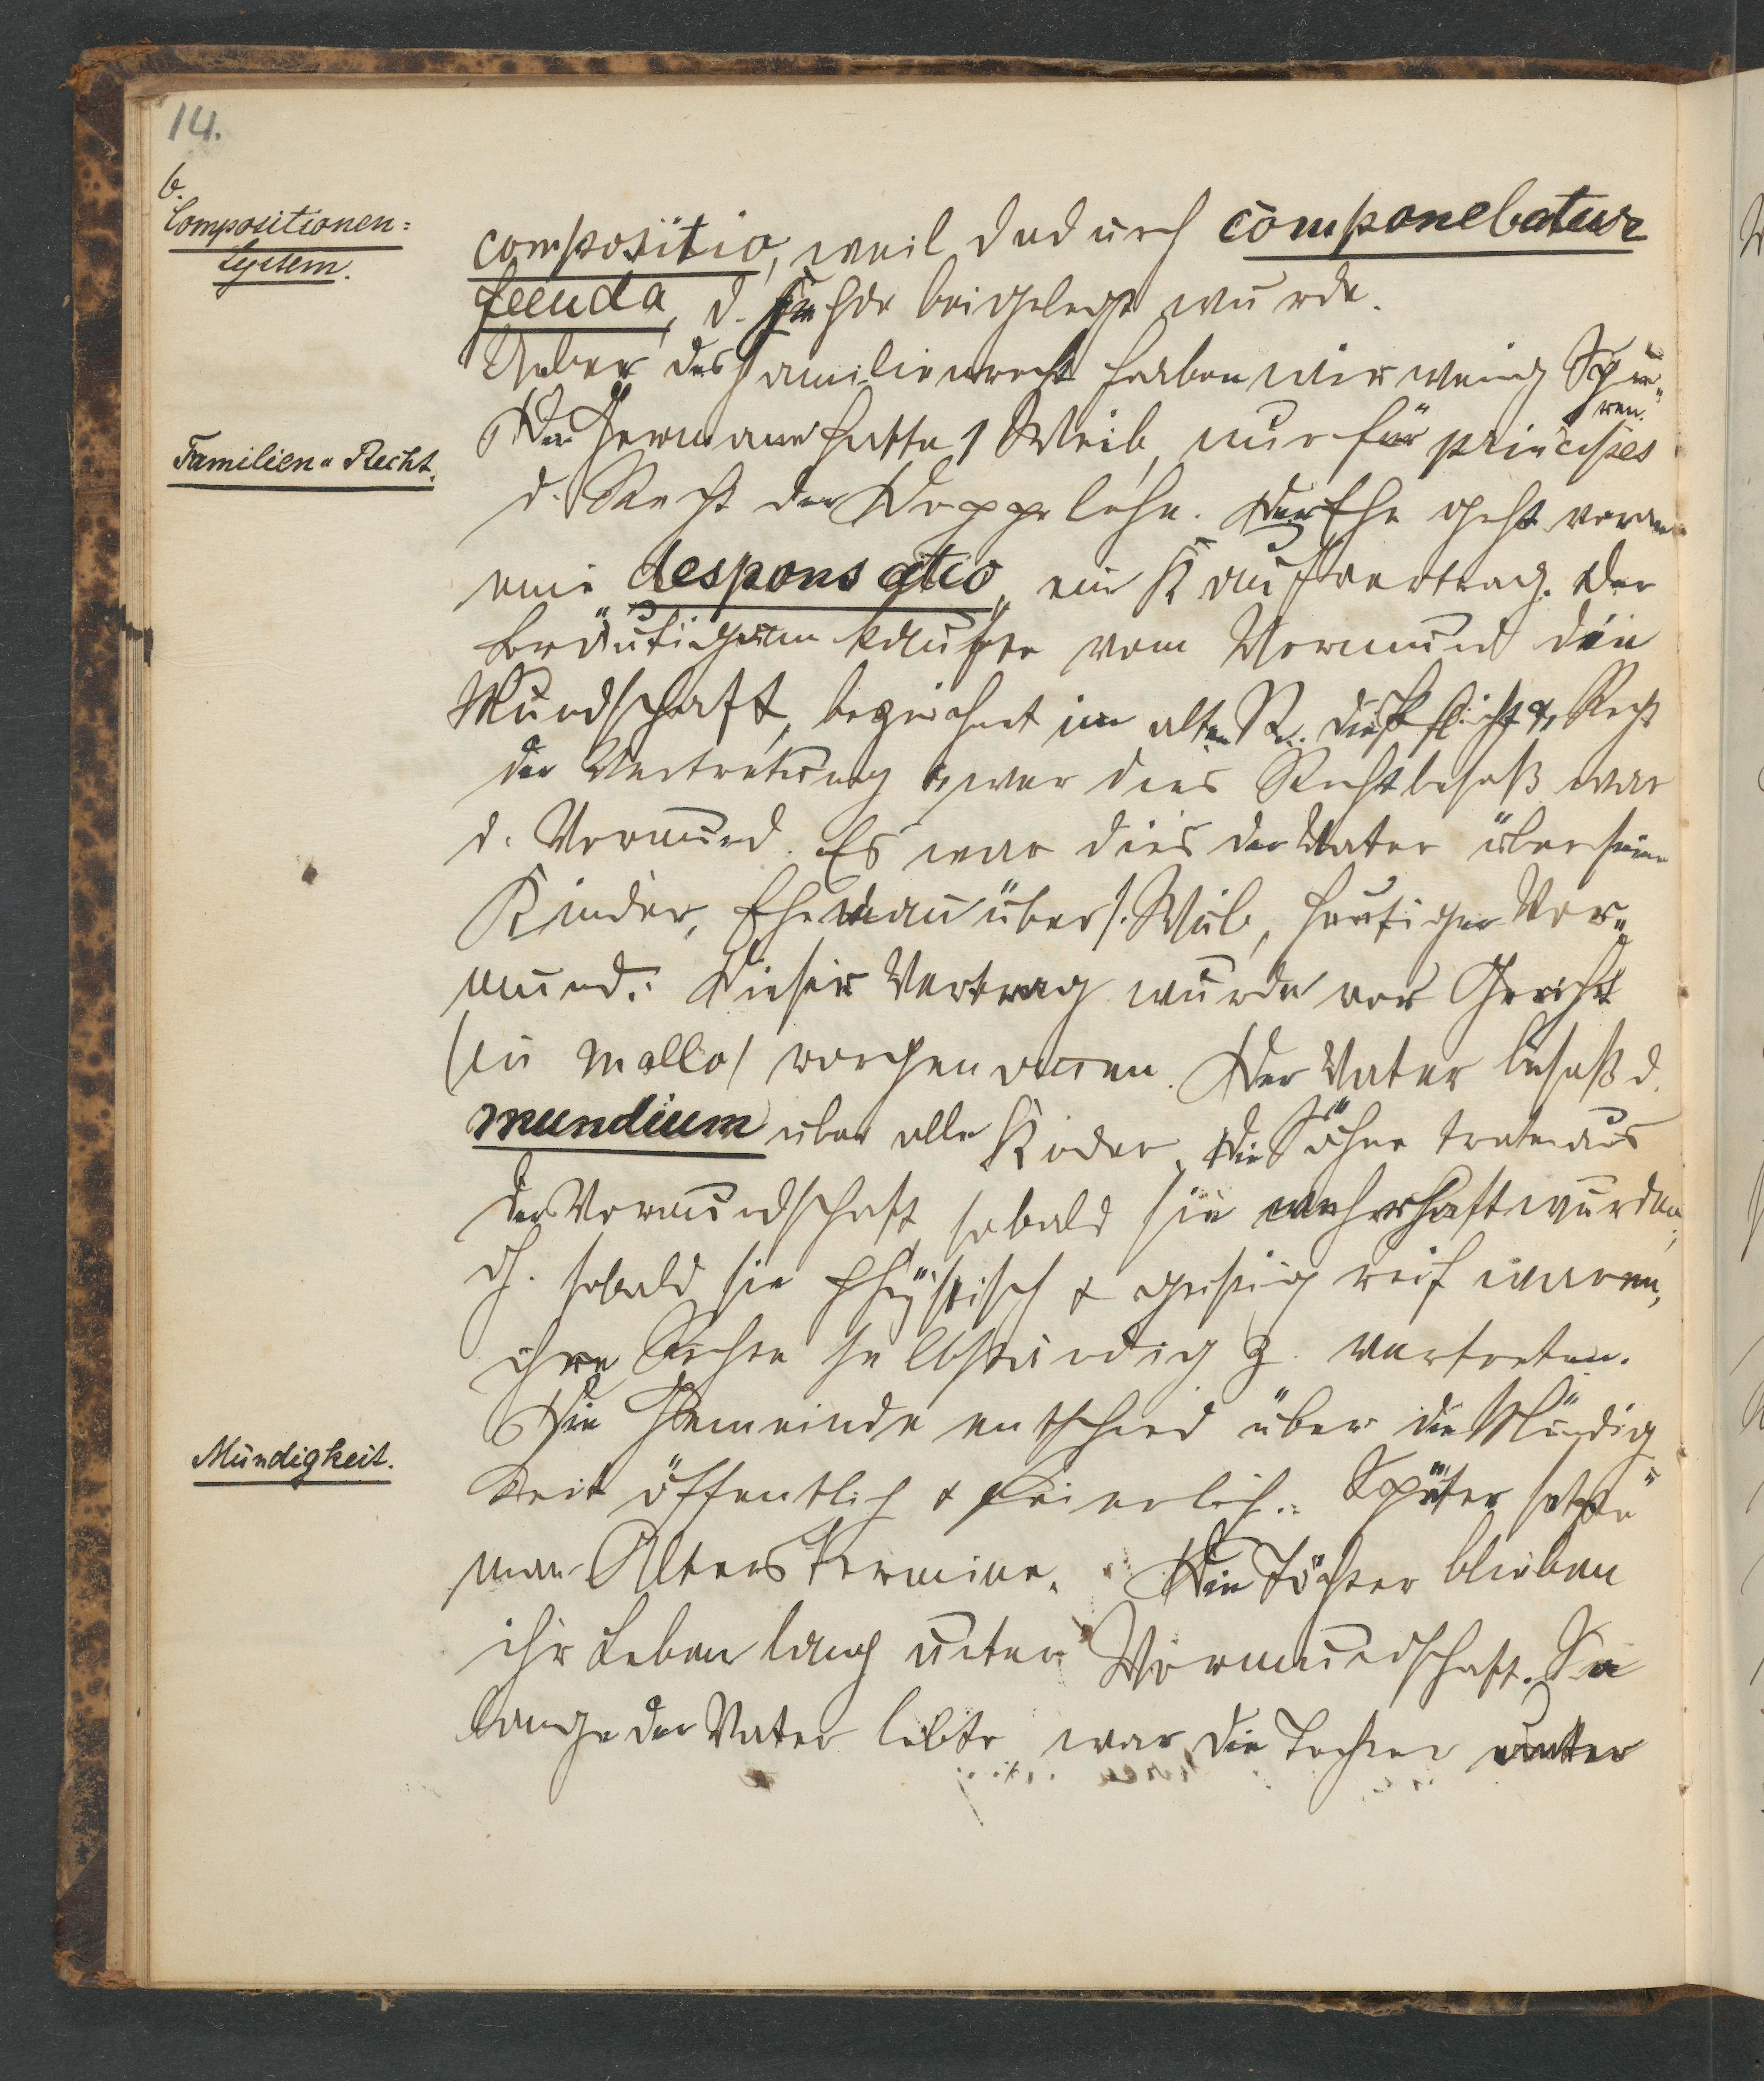 14.
b.
Compositionen=
System.
compositio, weil dadurch componebatur
feeuda, d. Fehde beigelegt wurde.
Ueber das Familienrecht haben wir wenig Spu„
ren.
Familien„Recht.
Der Germane hatte 1 Weib, nur für principes
d. Recht der Doppelehe. Der Ehe geht voran
eine desponsatio, ein Kaufvertrag. Der
Bräutigam kaufte vom Vormund die
Mundschaft, bezeichnet im alten R. die Pflicht & Recht
der Vertretung & wer dies Recht besaß war
d. Vormund. Es war dies der Vater über seine
Kinder, Ehemann über s. Weib, heutiger Vor„
mund. Dieser Vertrag wurde vor Gericht
(in mallo) vorgenommen. Der Vater besaß d.
mundium über alle Kinder. Die Söhne traten aus
der Vormundschaft, sobald sie wehrhaft wurden,
dh. sobald sie physisch & geistig reif waren,
ihre Rechte selbständig z. vertreten.
Die Gemeinde entschied über die Mündig
Mündigkeit.
keit öffentlich & feierlich. Später setzte
man Alterstermine. Die Töchter blieben
ihr Leben lang unter Vormundschaft. So
lange der Vater lebte war die Tochter unter